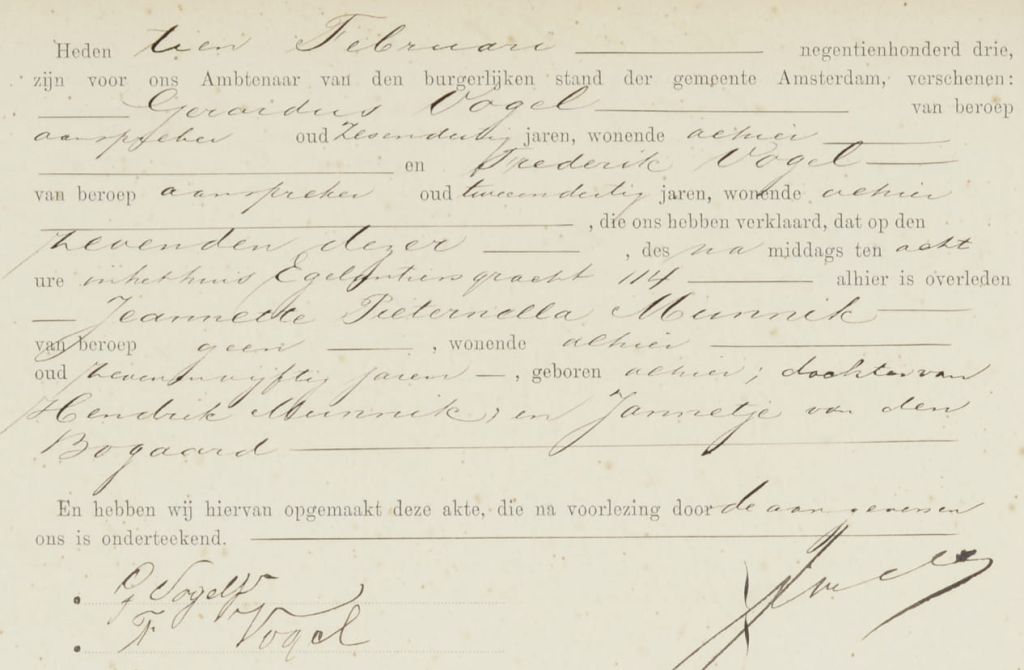 Heden tien Februari negentienhonderd drie,
zijn voor ons Ambtenaar van den burgerlijken stand der gemeente Amsterdam, verschenen:
Gerardus Vogel van beroep
aanspreker oud zesendertig jaren, wonende alhier
en Frederik Vogel
van beroep aanspreker oud tweeendertig jaren, wonende alhier
, die ons hebben verklaard, dat op den
zevenden dezer , des na middags ten acht
ure in het huis Egelantiersgracht 114 alhier is overleden
Jeannette Pieternella Munnik
van beroep geen , wonende alhier
oud zevenenvijftig jaren , geboren alhier; dochter van
Hendrik Munnik, en Jannetje van den
Bogaard
En hebben wij hiervan opgemaakt deze akte, die na voorlezing door de aangevers en
ons is onderteekend.
G Vogel
F Vogel